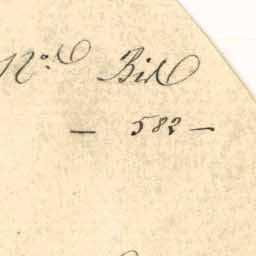 No. Bil
— 582 —